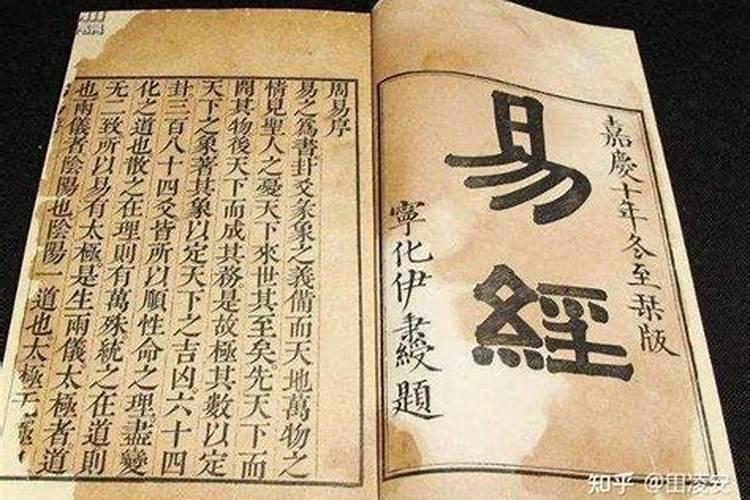 嘉慶十年冬至栞版
易經
寧化伊秉綬題
周易序
易之爲書卦爻彖象之義備而天地萬物之
情見聖人之憂天下來世其至矣先天下而
開其物後天下而成其務是故極其數以定
天下之象著其象以定天下之吉凶六十四
卦三百八十四爻皆所以順性命之理盡變
化之道也散之在理則有萬殊統之在道則
无二致所以易有太極是生兩儀太極者道
也兩儀者陰陽也陰陽一道也太極无極
知乎 @田淩安